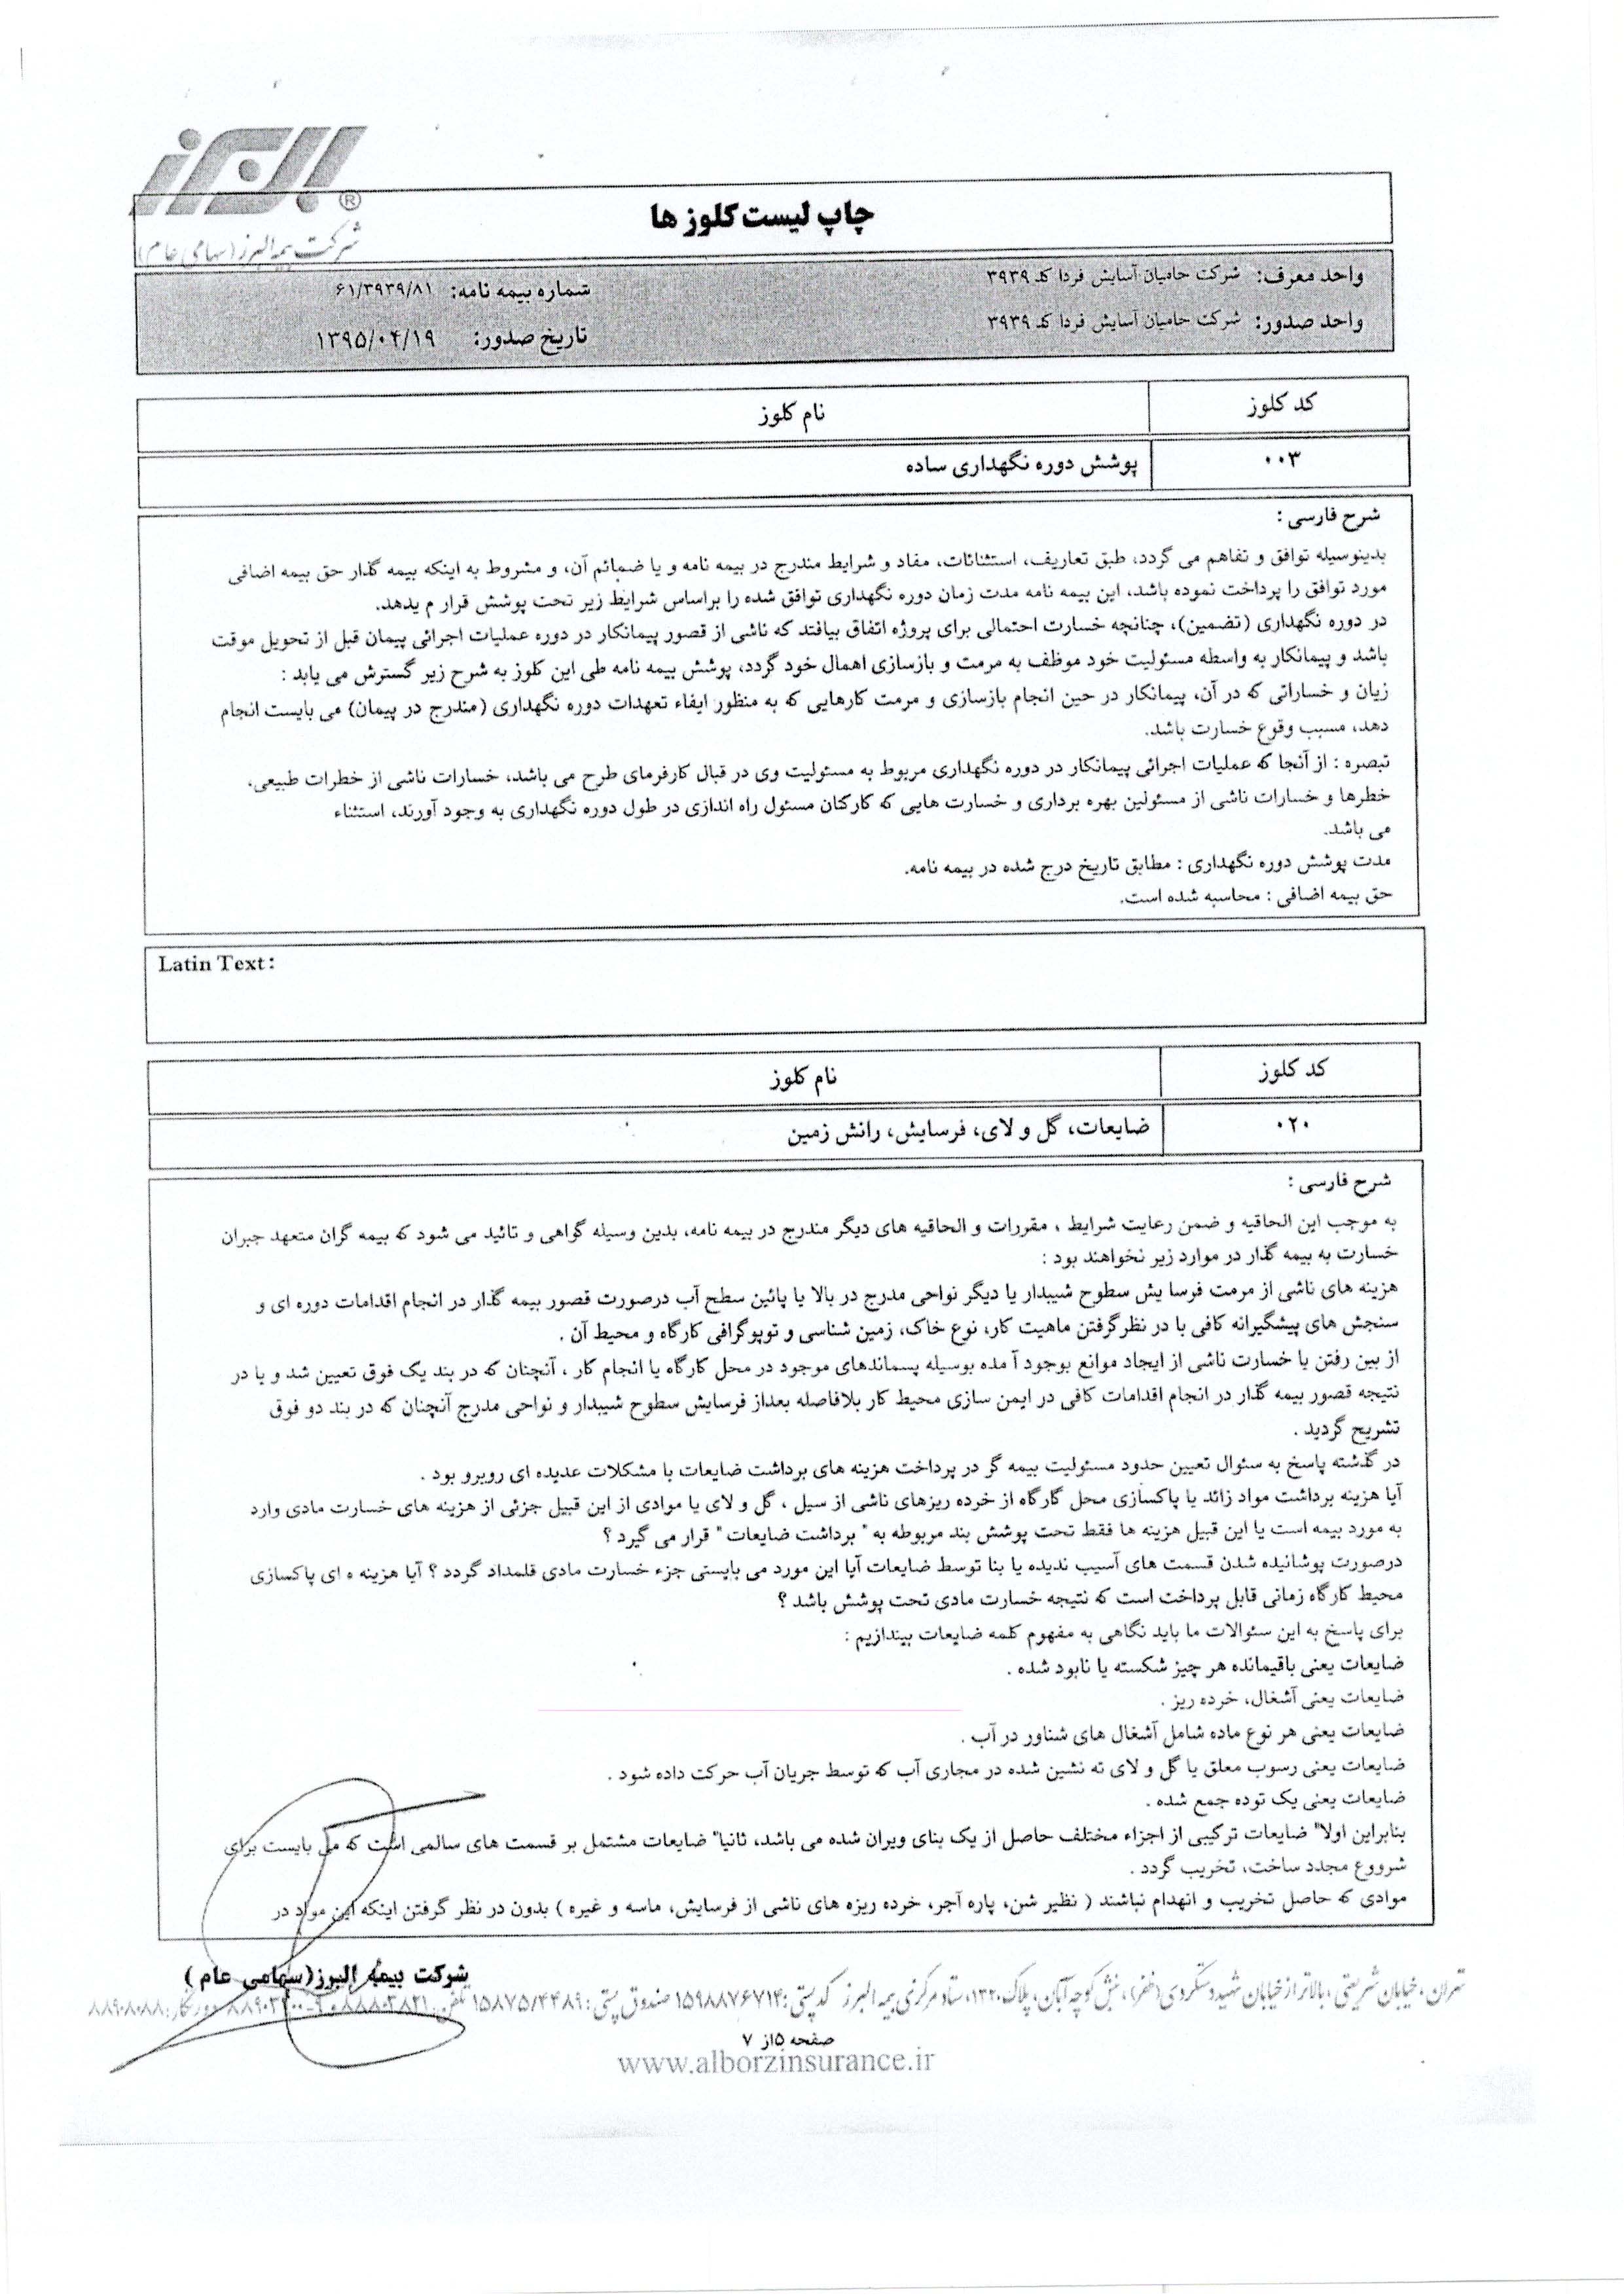 البرز ®
شرکت بیمه البرز (سهامی عام)
چاپ لیست کلوز ها
واحد معرف: شرکت حامیان آسایش فردا کد ۳۹۳۹
شماره بیمه نامه: ۶۱/۳۹۳۹/۸۱
واحد صدور: شرکت حامیان آسایش فردا کد ۳۹۳۹
تاریخ صدور: ۱۳۹۵/۰۴/۱۹
کد کلوز نام کلوز
۰۰۳ پوشش دوره نگهداری ساده
شرح فارسی :
بدینوسیله توافق و تفاهم می گردد، طبق تعاریف، استثنائات، مفاد و شرایط مندرج در بیمه نامه و یا ضمائم آن، و مشروط به اینکه بیمه گذار حق بیمه اضافی
مورد توافق را پرداخت نموده باشد، این بیمه نامه مدت زمان دوره نگهداری توافق شده را براساس شرایط زیر تحت پوشش قرار م یدهد.
در دوره نگهداری (تضمین)، چنانچه خسارت احتمالی برای پروژه اتفاق بیافتد که ناشی از قصور پیمانکار در دوره عملیات اجرائی پیمان قبل از تحویل موقت
باشد و پیمانکار به واسطه مسئولیت خود موظف به مرمت و بازسازی اهمال خود گردد، پوشش بیمه نامه طی این کلوز به شرح زیر گسترش می یابد :
زیان و خساراتی که در آن، پیمانکار در حین انجام بازسازی و مرمت کارهایی که به منظور ایفاء تعهدات دوره نگهداری (مندرج در پیمان) می بایست انجام
دهد، مسبب وقوع خسارت باشد.
تبصره : از آنجا که عملیات اجرائی پیمانکار در دوره نگهداری مربوط به مسئولیت وی در قبال کارفرمای طرح می باشد، خسارات ناشی از خطرات طبیعی،
خطرها و خسارات ناشی از مسئولین بهره برداری و خسارت هایی که کارکنان مسئول راه اندازی در طول دوره نگهداری به وجود آورند، استثناء
می باشد.
مدت پوشش دوره نگهداری : مطابق تاریخ درج شده در بیمه نامه.
حق بیمه اضافی : محاسبه شده است.
Latin Text:
کد کلوز نام کلوز
۰۲۰ ضایعات، گل و لای، فرسایش، رانش زمین
شرح فارسی :
به موجب این الحاقیه و ضمن رعایت شرایط ، مقررات و الحاقیه های دیگر مندرج در بیمه نامه، بدین وسیله گواهی و تائید می شود که بیمه گران متعهد جبران
خسارت به بیمه گذار در موارد زیر نخواهند بود :
هزینه های ناشی از مرمت فرسا یش سطوح شیبدار یا دیگر نواحی مدرج در بالا یا پائین سطح آب درصورت قصور بیمه گذار در انجام اقدامات دوره ای و
سنجش های پیشگیرانه کافی با در نظرگرفتن ماهیت کار، نوع خاک، زمین شناسی و توپوگرافی کارگاه و محیط آن .
از بین رفتن یا خسارت ناشی از ایجاد موانع بوجود آ مده بوسیله پسماندهای موجود در محل کارگاه یا انجام کار ، آنچنان که در بند یک فوق تعیین شد و یا در
نتیجه قصور بیمه گذار در انجام اقدامات کافی در ایمن سازی محیط کار بلافاصله بعداز فرسایش سطوح شیبدار و نواحی مدرج آنچنان که در بند دو فوق
تشریح گردید .
در گذشته پاسخ به سئوال تعیین حدود مسئولیت بیمه گر در پرداخت هزینه های برداشت ضایعات با مشکلات عدیده ای روبرو بود .
آیا هزینه برداشت مواد زائد یا پاکسازی محل گارگاه از خرده ریزهای ناشی از سیل ، گل و لای یا موادی از این قبیل جزئی از هزینه های خسارت مادی وارد
به مورد بیمه است یا این قبیل هزینه ها فقط تحت پوشش بند مربوطه به " برداشت ضایعات " قرار می گیرد ؟
درصورت پوشانیده شدن قسمت های آسیب ندیده یا بنا توسط ضایعات آیا این مورد می بایستی جزء خسارت مادی قلمداد گردد ؟ آیا هزینه ه ای پاکسازی
محیط کارگاه زمانی قابل پرداخت است که نتیجه خسارت مادی تحت پوشش باشد ؟
برای پاسخ به این سئوالات ما باید نگاهی به مفهوم کلمه ضایعات بیندازیم :
ضایعات یعنی باقیمانده هر چیز شکسته یا نابود شده .
ضایعات یعنی آشغال، خرده ریز .
ضایعات یعنی هر نوع ماده شامل آشغال های شناور در آب .
ضایعات یعنی رسوب معلق یا گل و لای ته نشین شده در مجاری آب که توسط جریان آب حرکت داده شود .
ضایعات یعنی یک توده جمع شده .
بنابراین اولا" ضایعات ترکیبی از اجزاء مختلف حاصل از یک بنای ویران شده می باشد، ثانیا" ضایعات مشتمل بر قسمت های سالمی است که می بایست برای
شرووع مجدد ساخت، تخریب گردد .
موادی که حاصل تخریب و انهدام نباشند ( نظیر شن، پاره آجر، خرده ریزه های ناشی از فرسایش، ماسه و غیره ) بدون در نظر گرفتن اینکه این مواد در
شرکت بیمه البرز(سهامی عام )
تهران، خیابان شریعتی، بالاتر از خیابان شهید دستگردی (ظفر)، نبش کوچه آبان، پلاک ۱۳۲۰، ستاد مرکزی بیمه البرز کد پستی: ۱۵۹۸۸۷۶۷۱۴ صندوق پستی: ۱۵۸۷۵/۴۴۸۹ تلفن: دورنگار: ۸۸۹۰۸۰۸۸
صفحه ۵از ۷
www.alborzinsurance.ir